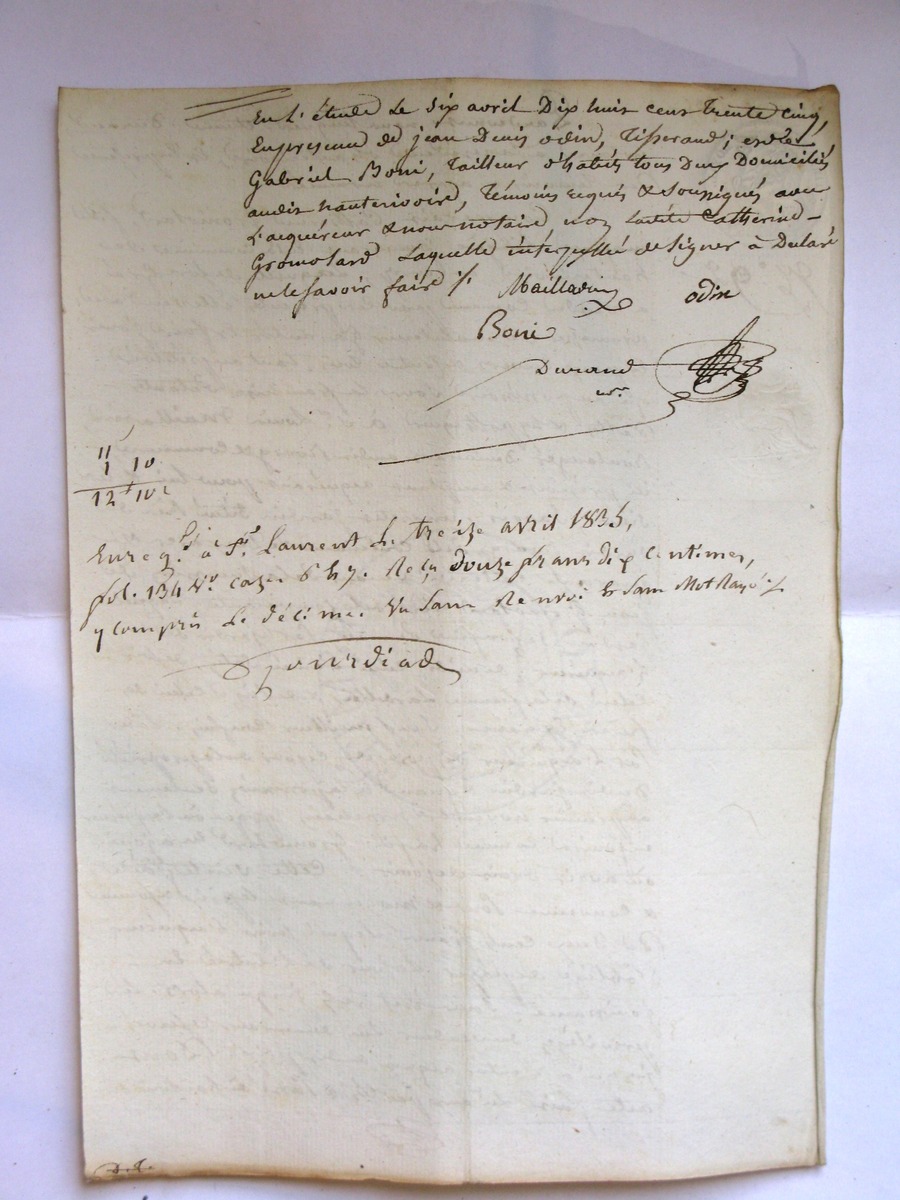 En L'étude Le Six avril Dix huit cent trente Cinq,
En presence de jean Denis odin, Tisserand; et de
Gabriel Boni, Tailleur d'habits tous Deux Domiciliés
audit hauterivoire, Témoins requis & soussignés avec
L'acquéreur & nous notaire non ladite Catherine
Gromolard Laquelle interpellée de Signer à Déclaré
ne le savoir faire ./.
Maillavin odin
Boni
Durand
nre
11
1 10
12 f 10 c
Enreg.é à St. Laurent Le treize avril 1835,
fol. 134 Vo. caze 6 & 7. Reçu Douze francs dix centimes,
y compris Le décime. Vu Sans Renvoi & Sans Mot Rayé ./.